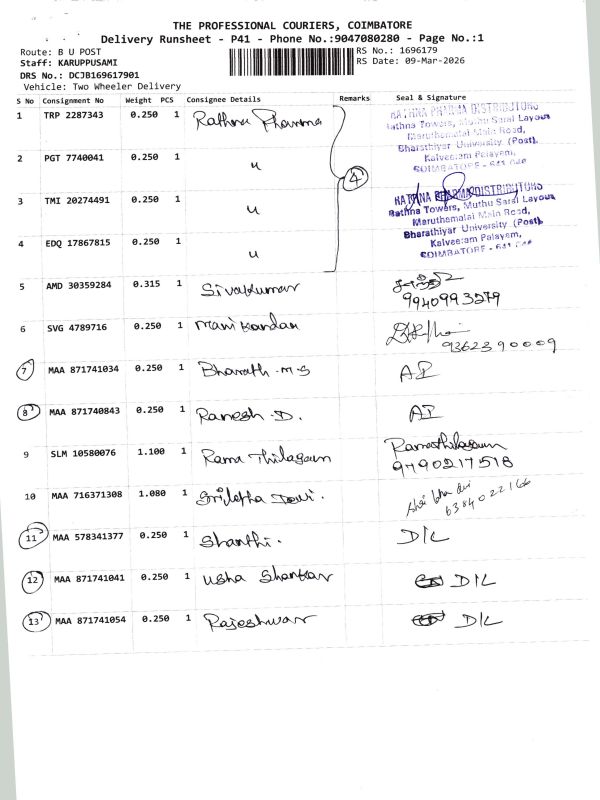 THE PROFESSIONAL COURIERS, COIMBATORE
Delivery Runsheet - P41 - Phone No.:9047080280 - Page No.:1
Route: B U POST
RS No.: 1696179
Staff: KARUPPUSAMI
RS Date: 09-Mar-2026
DRS No.: DCJB169617901
Vehicle: Two Wheeler Delivery
S No Consignment No Weight PCS Consignee Details Remarks Seal & Signature
1 TRP 2287343 0.250 1 Rathna Pharma
RATHNA PHARMA DISTRIBUTORS
Rathna Towers, Muthu Sarai Layout
Maruthamalai Main Road,
Bharathiyar University (Post),
Kalveeram Palayam,
COIMBATORE - 641 046
2 PGT 7740041 0.250 1 "
4
3 TMI 20274491 0.250 1 "
RATHNA PHARMA DISTRIBUTORS
Rathna Towers, Muthu Sarai Layout
Maruthemalai Main Road,
Bharathiyar University (Post),
Kalveeram Palayem,
COIMBATORE
4 EDQ 17867815 0.250 1 "
5 AMD 30359284 0.315 1 Sivakumar
9940993279
6 SVG 4789716 0.250 1 Manikandan
9362390009
7 MAA 871741034 0.250 1 Bharath.M.S
8 MAA 871740843 0.250 1 Ranesh.D.
9 SLM 10580076 1.100 1 Rama Thilagam Ramathilagam
9790217518
10 MAA 716371308 1.080 1
6384022166
11 MAA 578341377 0.250 1 Shanthi. D/L
12 MAA 871741041 0.250 1 Usha Shankar D/L
13 MAA 871741054 0.250 1 Rajeshwar D/L